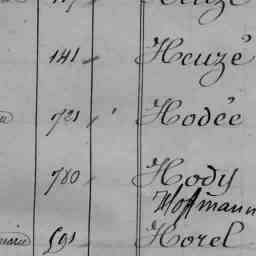 141 Heuzé
721 Hodée
780 Hody
Hoffmann
591 Horel